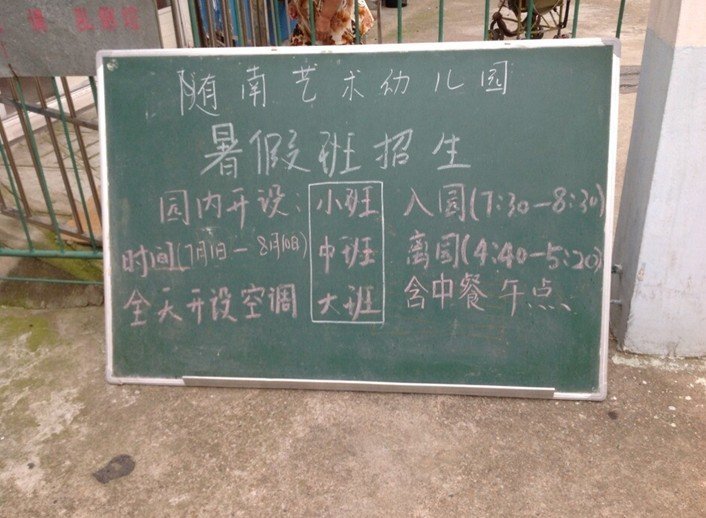 随南艺术幼儿园
暑假班招生
园内开设: 小班 入园(7:30-8:30)
时间(7月1日-8月10日) 中班 离园(4:40-5:20)
全天开设空调 大班 含中餐 午点、